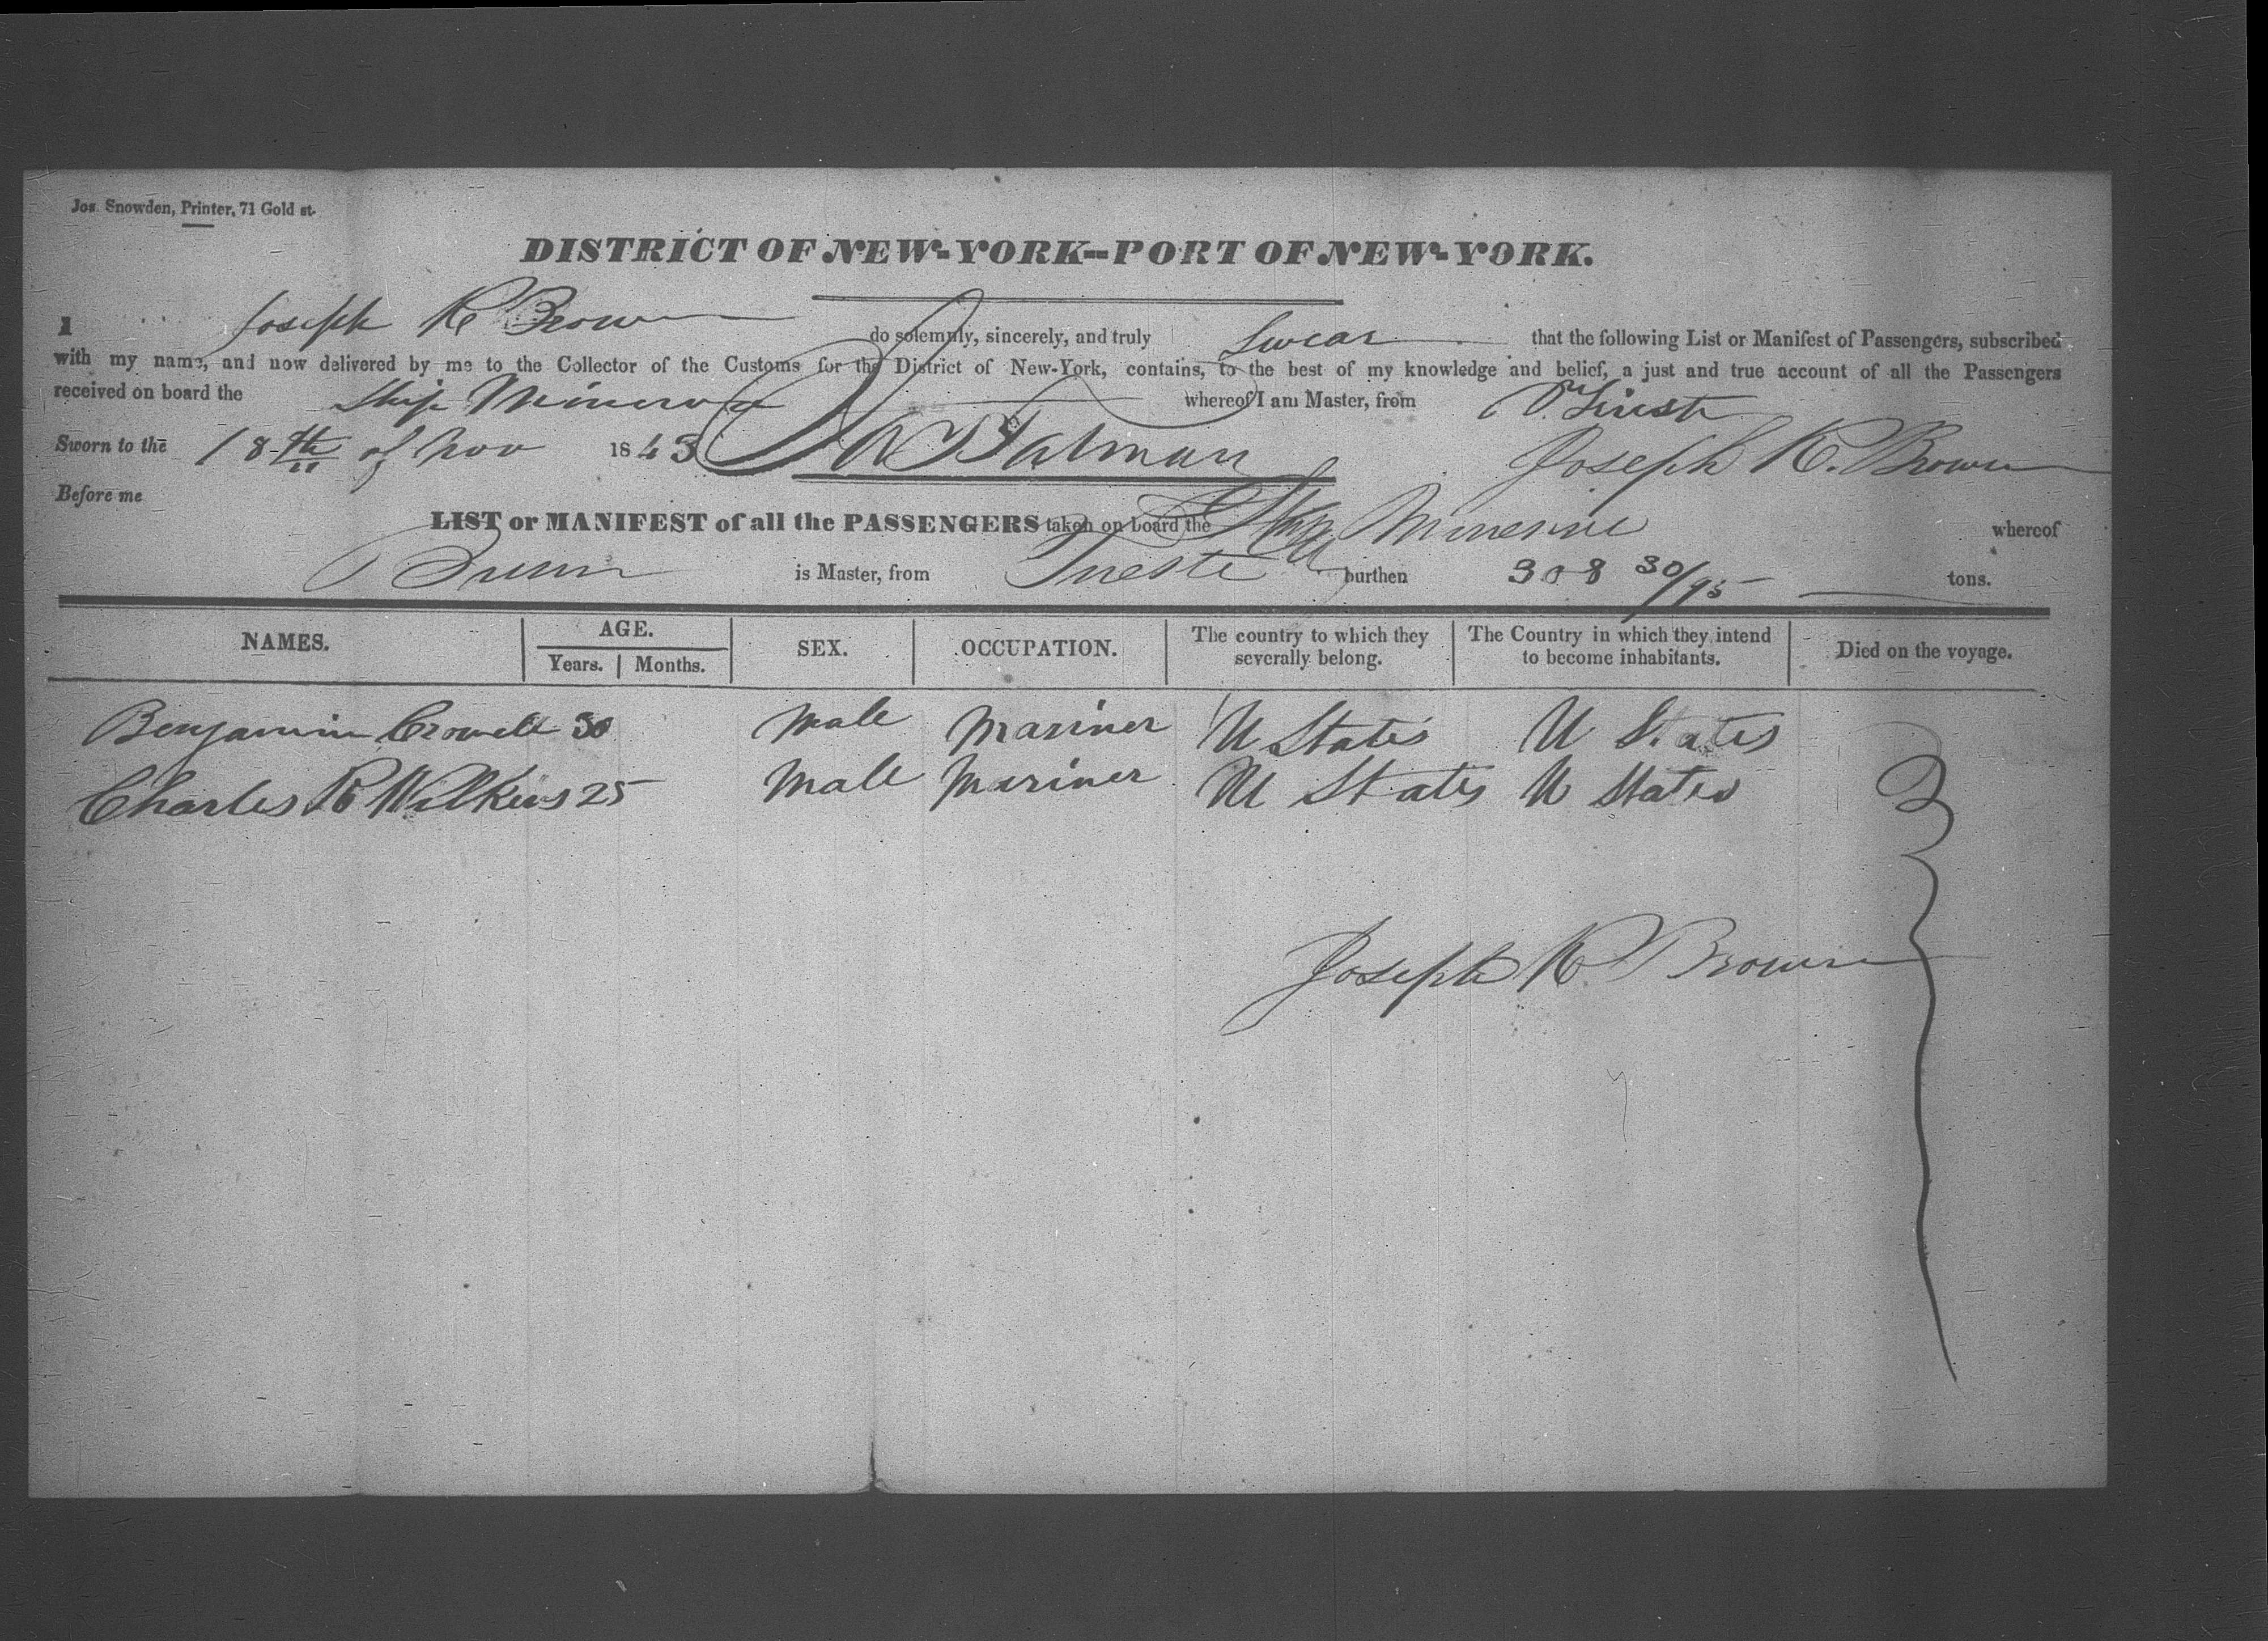 Jos. Snowden, Printer, 71 Gold st.
DISTRICT OF NEW-YORK--PORT OF NEW-YORK.
I Joseph R Brown do solemnly, sincerely, and truly Swear that the following List or Manifest of Passengers, subscribed
with my name, and now delivered by me to the Collector of the Customs for the District of New-York, contains, to the best of my knowledge and belief, a just and true account of all the Passengers
received on board the Ship Minerva whereof I am Master, from Trieste
Sworn to the 18th of Nov 1843 Talman Joseph R. Brown
Before me
LIST or MANIFEST of all the PASSENGERS taken on board the Ship Minerva whereof
Brown is Master, from Trieste burthen 308 30/95 tons.
NAMES. AGE. Years. Months. SEX. OCCUPATION. The country to which they severally belong. The Country in which they intend to become inhabitants. Died on the voyage.
Benjamin Crowell 30 Male Mariner U States U States
Charles R Wilkins 25 Male Mariner U States U States
Joseph R Brown